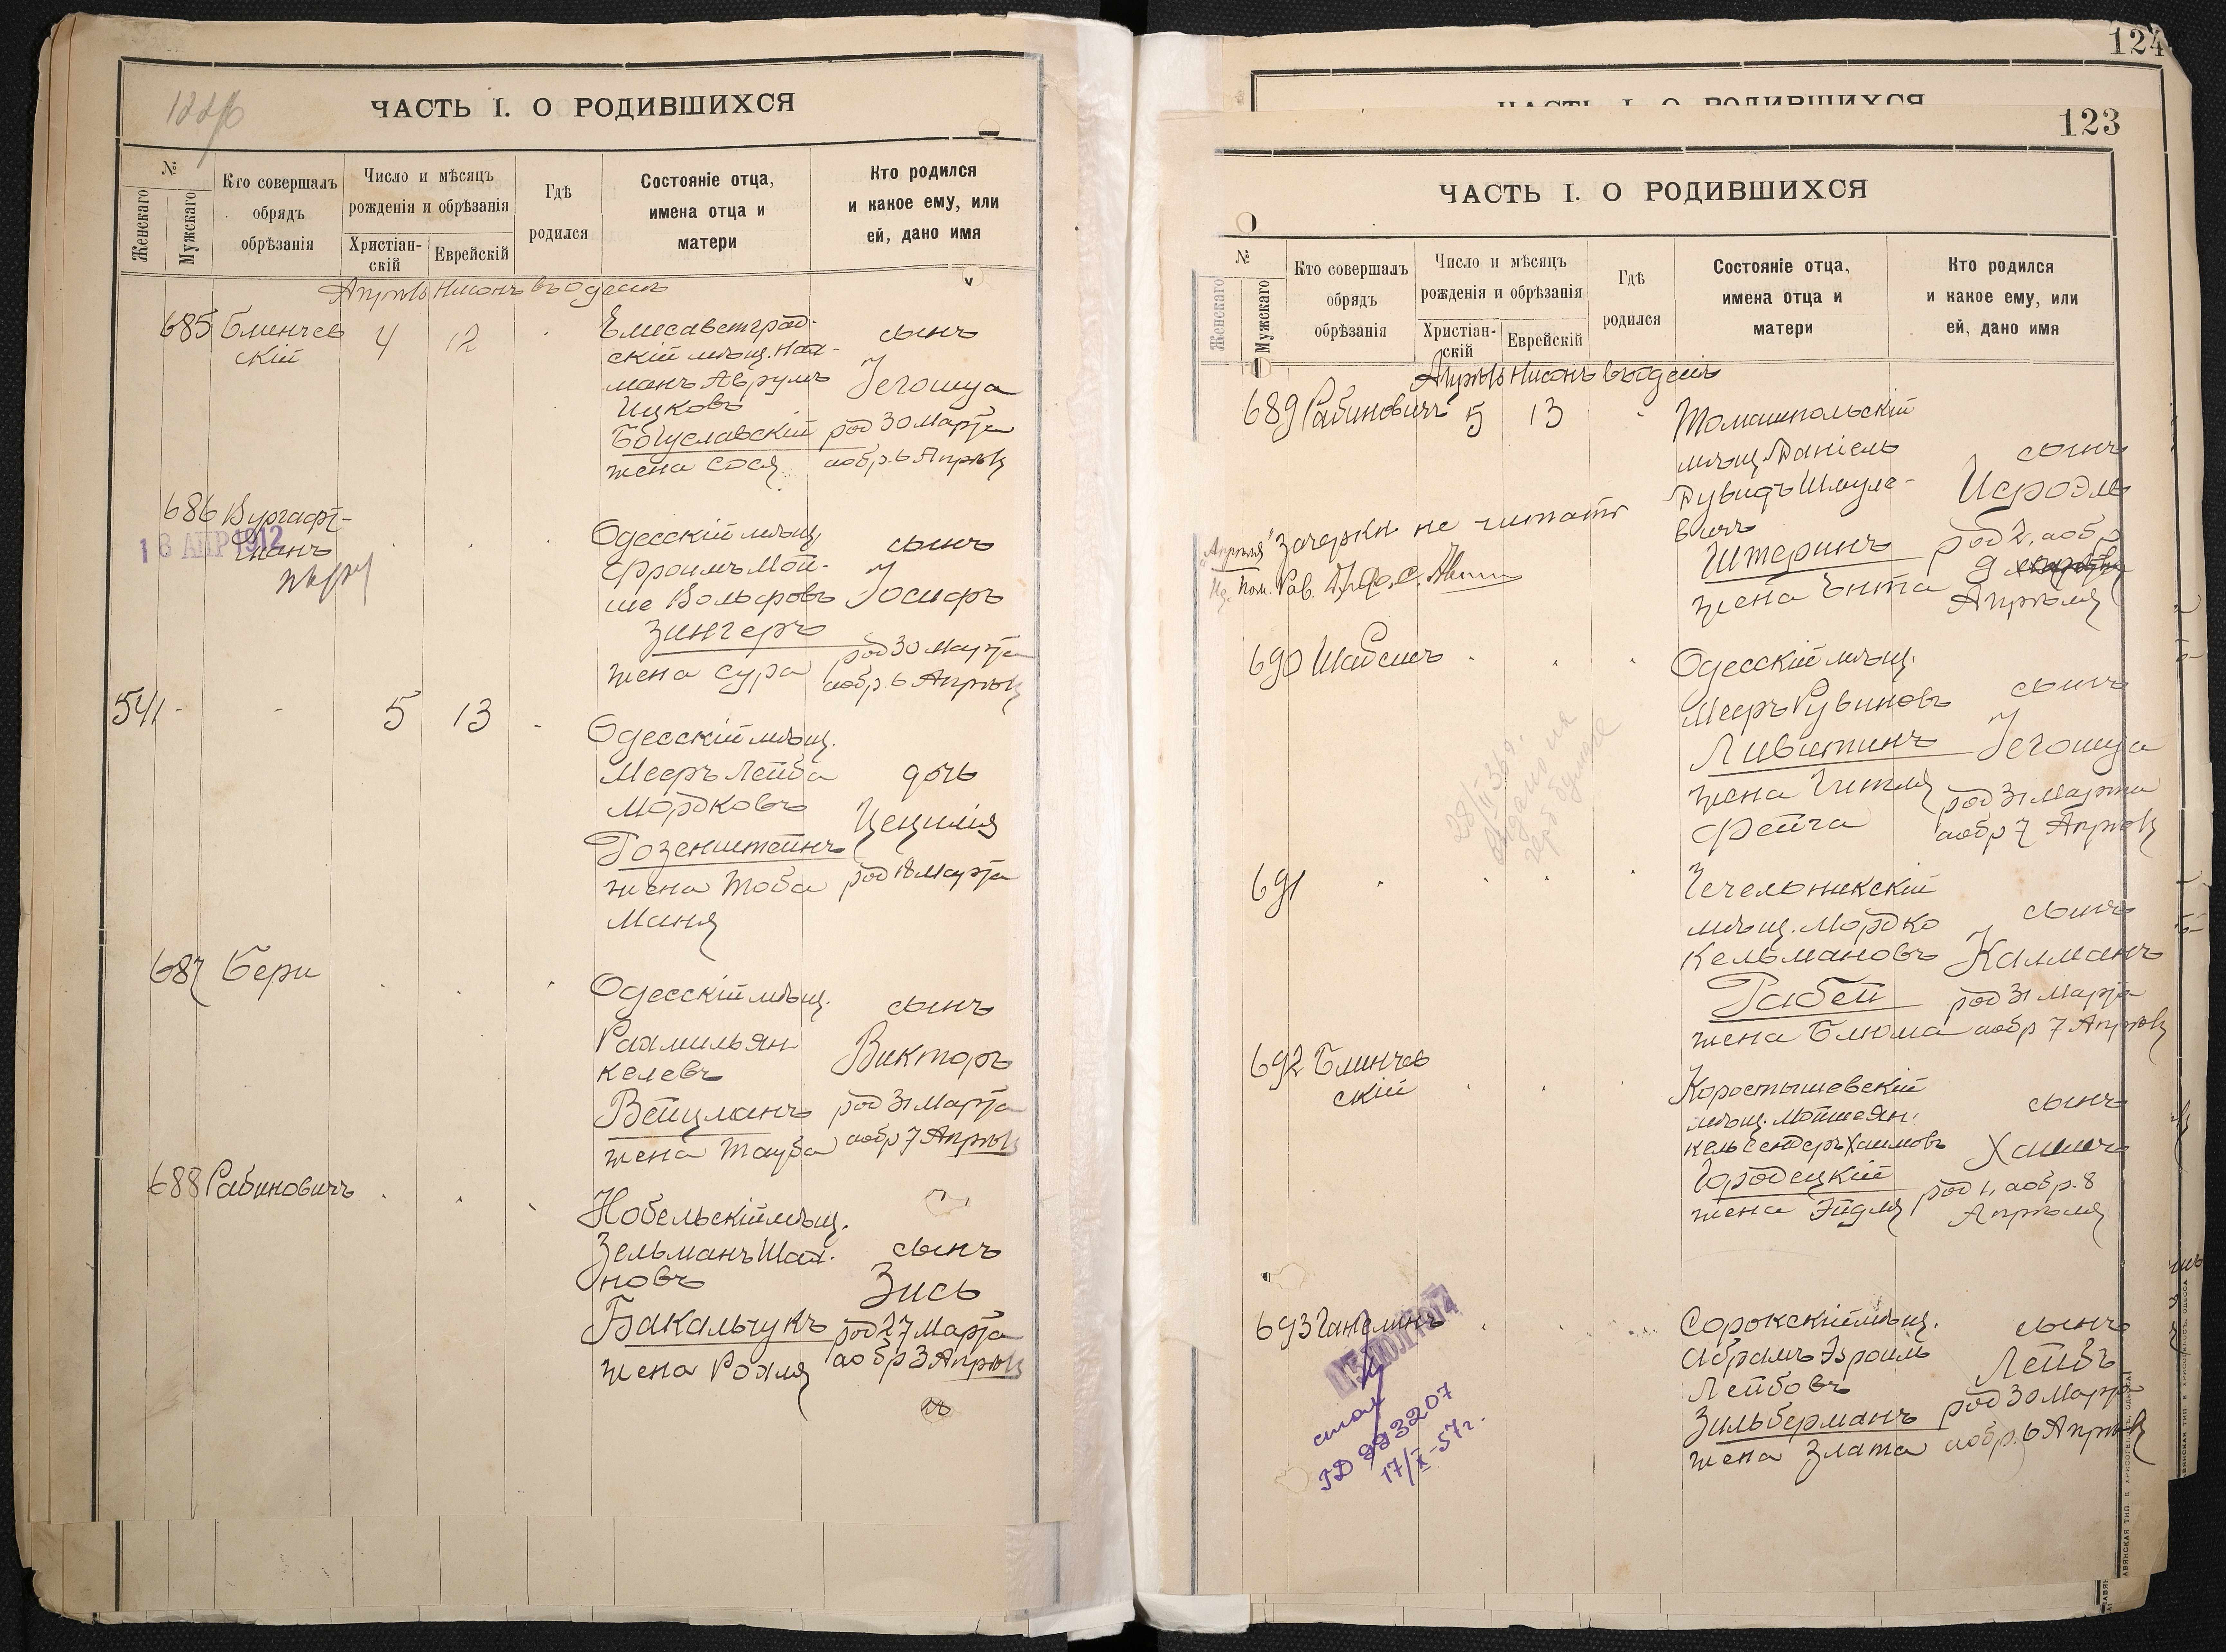 ЧАСТЬ I. О РОДИВШИХСЯ
№
Женскаго
Мужскаго
Кто совершалъ
обрядъ
обрѣзанія
Число и мѣсяцъ
рожденія и обрѣзанія
Христіан-
скій
Еврейскій
Гдѣ
родился
Состояніе отца,
имена отца и
матери
Кто родился
и какое ему, или
ей, дано имя
Апрѣль Нисонъ въ Одессѣ
685 Блинчев
скій
4 12
Елисаветград-
скій мѣщ. Нах-
манъ Аврумъ
Ицковъ
Богуславскій
жена Сося
сынъ
Іегошуа
род 30 Марта
а обр. 6 Апрѣля
686 Вургафт-
манъ
18 АПР 1912
Одесскій мѣщ.
Фроимъ Мой-
ше Вольфовъ
Зингеръ
жена Сура
сынъ
Іосифъ
род 30 Марта
а обр. 6 Апрѣля
541 - - 5 13 -
Одесскій мѣщ.
Мееръ Лейба
Мордковъ
Розенштейнъ
жена Тоба
Маня
дочь
Цецилія
род 18 Марта
687 Бери
Одесскій мѣщ.
Рахмиль Ян
келевъ
Вейцманъ
жена Тауба
сынъ
Викторъ
род 31 Марта
а обр 7 Апрѣля
688 Рабиновичъ
Нобельскій мѣщ.
Зельманъ Шах-
новъ
Бакальчукъ
жена Рохля
сынъ
Зись
род 27 Марта
а обр 3 Апрѣля
124
ЧАСТЬ I. О РОДИВШИХСЯ
123
ЧАСТЬ I. О РОДИВШИХСЯ
№
Женскаго
Мужскаго
Кто совершалъ
обрядъ
обрѣзанія
Число и мѣсяцъ
рожденія и обрѣзанія
Христіан-
скій
Еврейскій
Гдѣ
родился
Состояніе отца,
имена отца и
матери
Кто родился
и какое ему, или
ей, дано имя
Апрѣль Нисонъ въ Одессѣ
689 Рабиновичъ 5 13
Томашпольскій
мѣщ. Даніель
Дувидъ Шмуле-
вичъ
Штеринъ
жена Ента
сынъ
Исроэль
род 2, а обр
9
Апрѣля
Апрѣля" зачеркн. не читать
Пом. Рав.
690 Шабсисъ
Одесскій мѣщ.
Мееръ Рувиновъ
Лившинъ
жена Гитля
Фейга
сынъ
Іегошуа
род 31 Марта
а обр 7 Апрѣля
691
Чечельникскій
мѣщ. Мордко
Кельмановъ
Рабей
жена Блюма
сынъ
Калманъ
род 31 Марта
а обр 7 Апрѣля
692 Блинчев
скій
Коростышевскій
мѣщ. Мойше Ян-
кель Сендеръ Хаимовъ
Городецкій
жена Эйдля
сынъ
Хаимъ
род 1, а обр. 8
Апрѣля
693 Ганелинъ
Сорокскій мѣщ.
Абрамъ Эфроимъ
Лейбовъ
Зильберманъ
жена Злата
сынъ
Лейбъ
род 30 Марта
а обр. 6 Апрѣля
993207
17/X-57г.